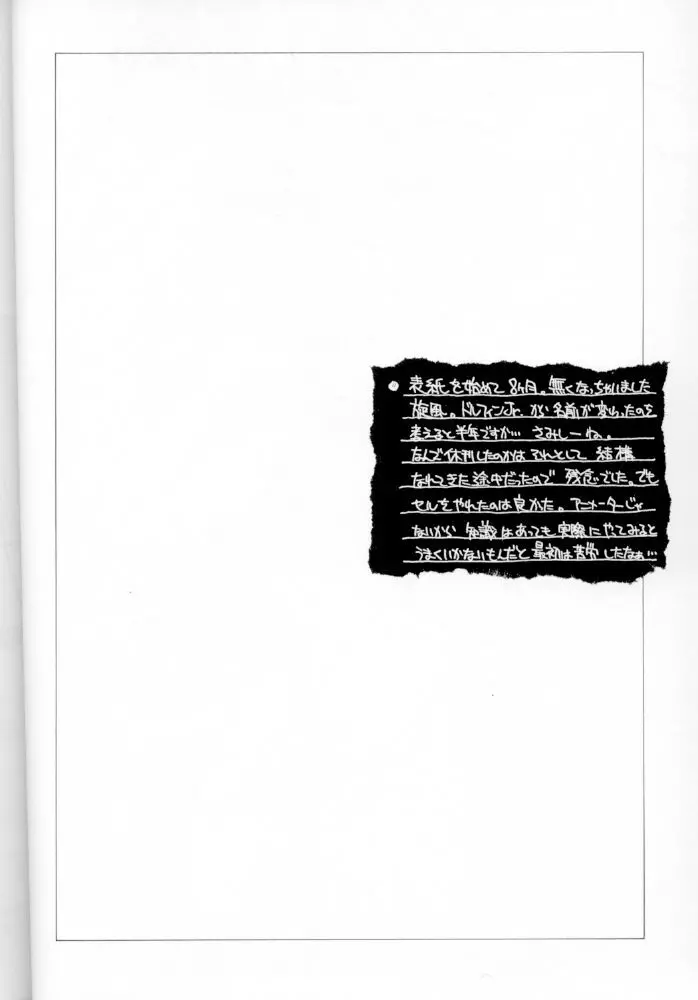 表紙を始めて8ヶ月。無くなっちゃいました
旋風。ドルフィンJr.から名前が変わったのを
考えると半年ですが… さみしーね。
なんで休刊したのかはそれとして 結構
なれてきた途中だったので 残念でした。でも
セルをやれたのは良かた。アニメーターじゃ
ないから 知識はあっても実際にやってみると
うまくいかないもんだと最初は苦労したなぁ…